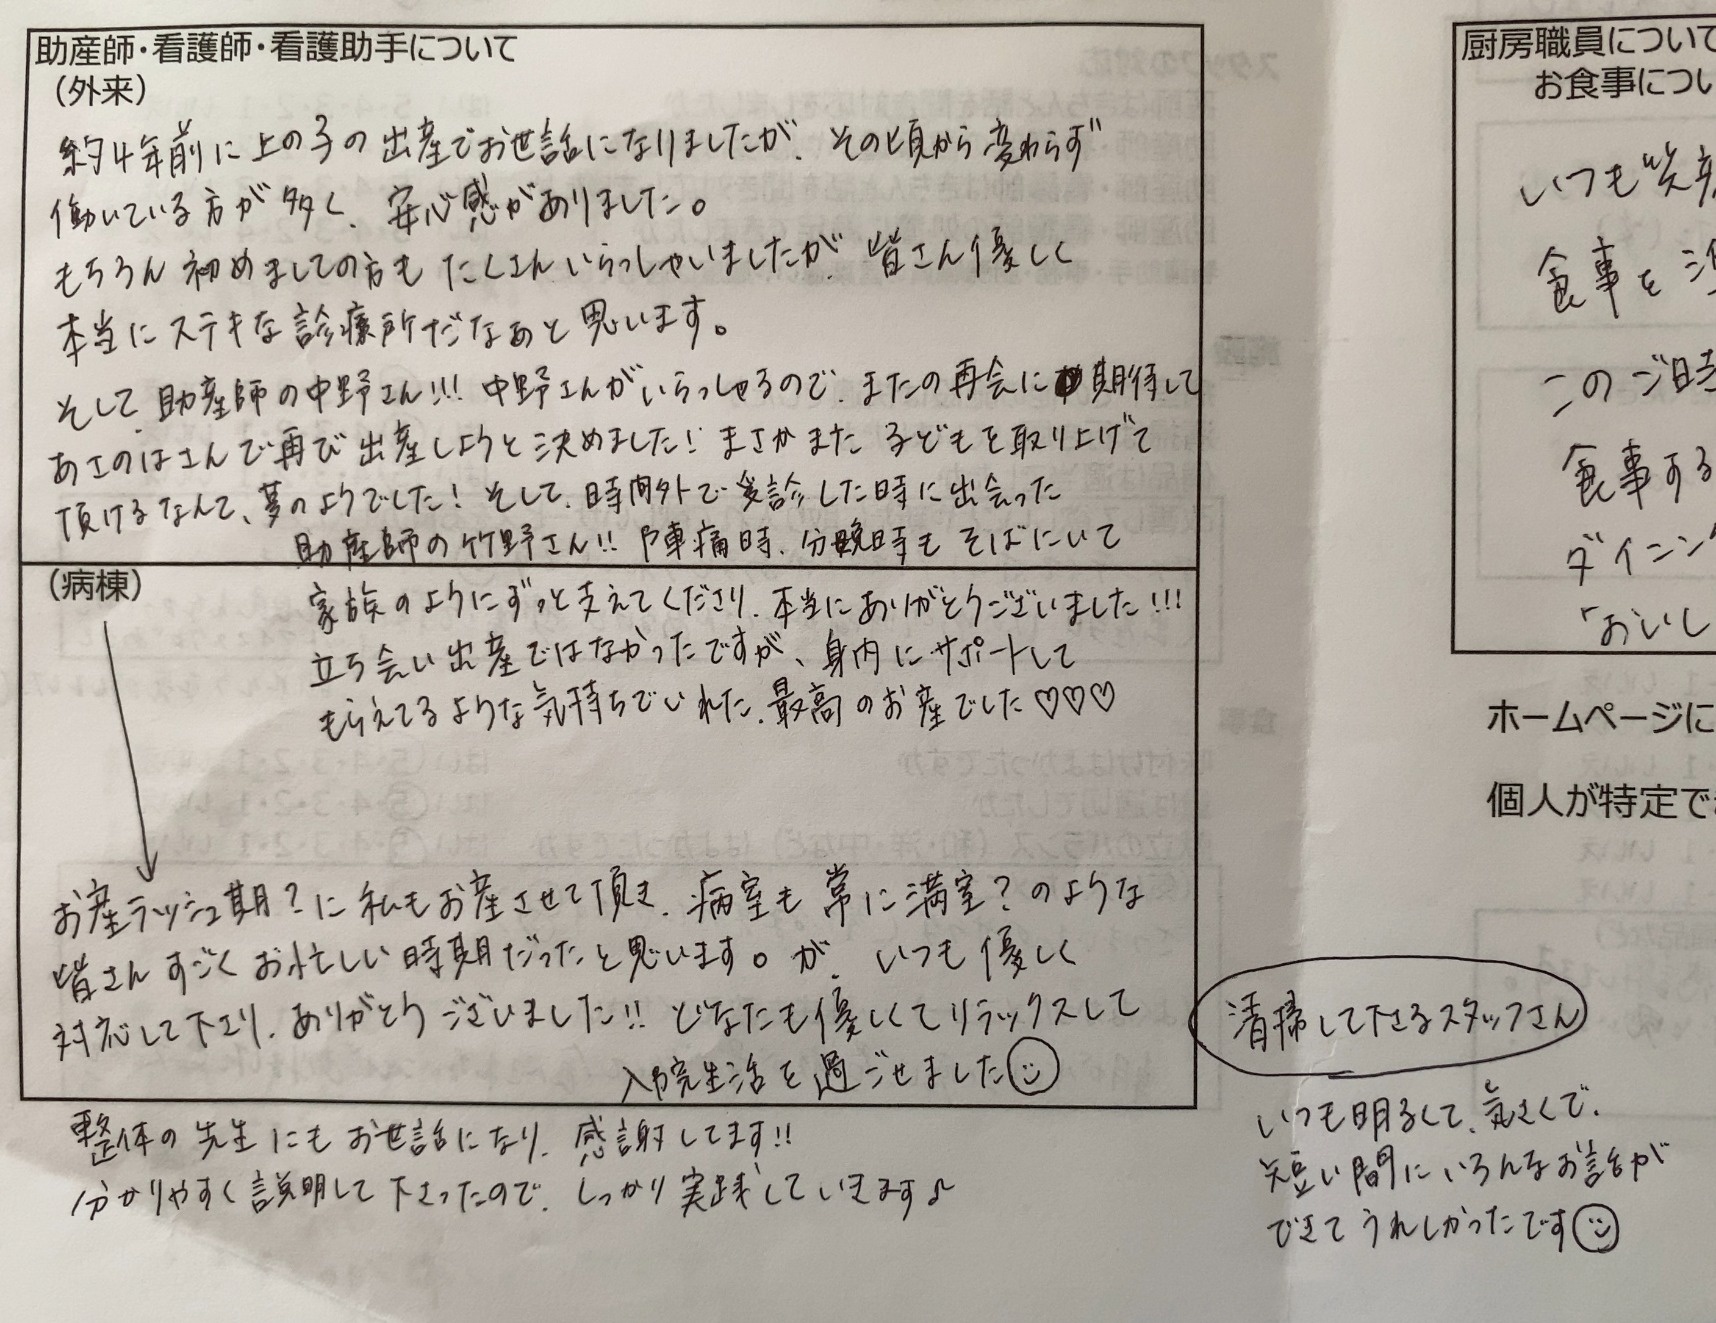 助産師・看護師・看護助手について
（外来）
約4年前に上の子の出産でお世話になりましたが、その頃から変わらず
働いている方が多く、安心感がありました。
もちろん初めましての方もたくさんいらっしゃいましたが、皆さん優しく
本当にステキな診療所だなぁと思います。
そして、助産師の中野さん!!! 中野さんがいらっしゃるので、またの再会に期待して
あさのはさんで再び出産しようと決めました！まさかまた子どもを取り上げて
頂けるなんて、夢のようでした！そして、時間外で受診した時に出会った
助産師の竹野さん!! 陣痛時、分娩時もそばにいて
（病棟）
家族のようにずっと支えてくださり、本当にありがとうございました!!!
立ち会い出産ではなかったですが、身内にサポートして
もらえてるような気持ちでいれた、最高のお産でした♡♡♡
お産ラッシュ期？に私もお産させて頂き、病室も常に満室？のような
皆さんすごくお忙しい時期だったと思います。が、いつも優しく
対応して下さり、ありがとうございました!! どなたも優しくてリラックスして
入院生活を過ごせました☺
整体の先生にもお世話になり、感謝してます!!
分かりやすく説明して下さったので、しっかり実践していきます♪
厨房職員について
お食事につい
いつも笑
食事を
このご時
食事する
ダイニン
「おいし
ホームページに
個人が特定で
清掃して下さるスタッフさん
いつも明るくて、気さくで、
短い間にいろんなお話が
できてうれしかったです☺